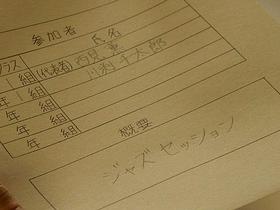 参加者 氏名
クラス
1組 (代表者) 西見 薫
1組 川渕 千太郎
年 組
年 組
年 組
概要
ジャズセッション